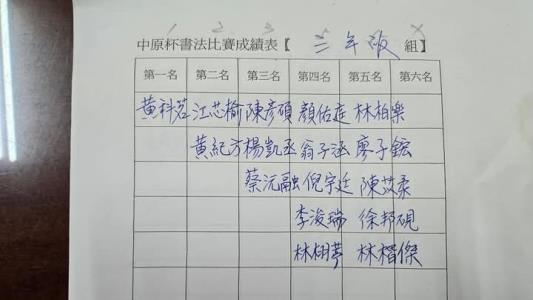 中原杯書法比賽成績表【三年級組】
第一名 第二名 第三名 第四名 第五名 第六名
黃科茗 江芯榆 陳彥碩 顏佑庭 林柏樂
黃紀方 楊凱丞 翁子涵 廖子鋐
蔡沅融 倪宇廷 陳苡柔
李浚瑞 徐邦硯
林栩萼 林楷傑